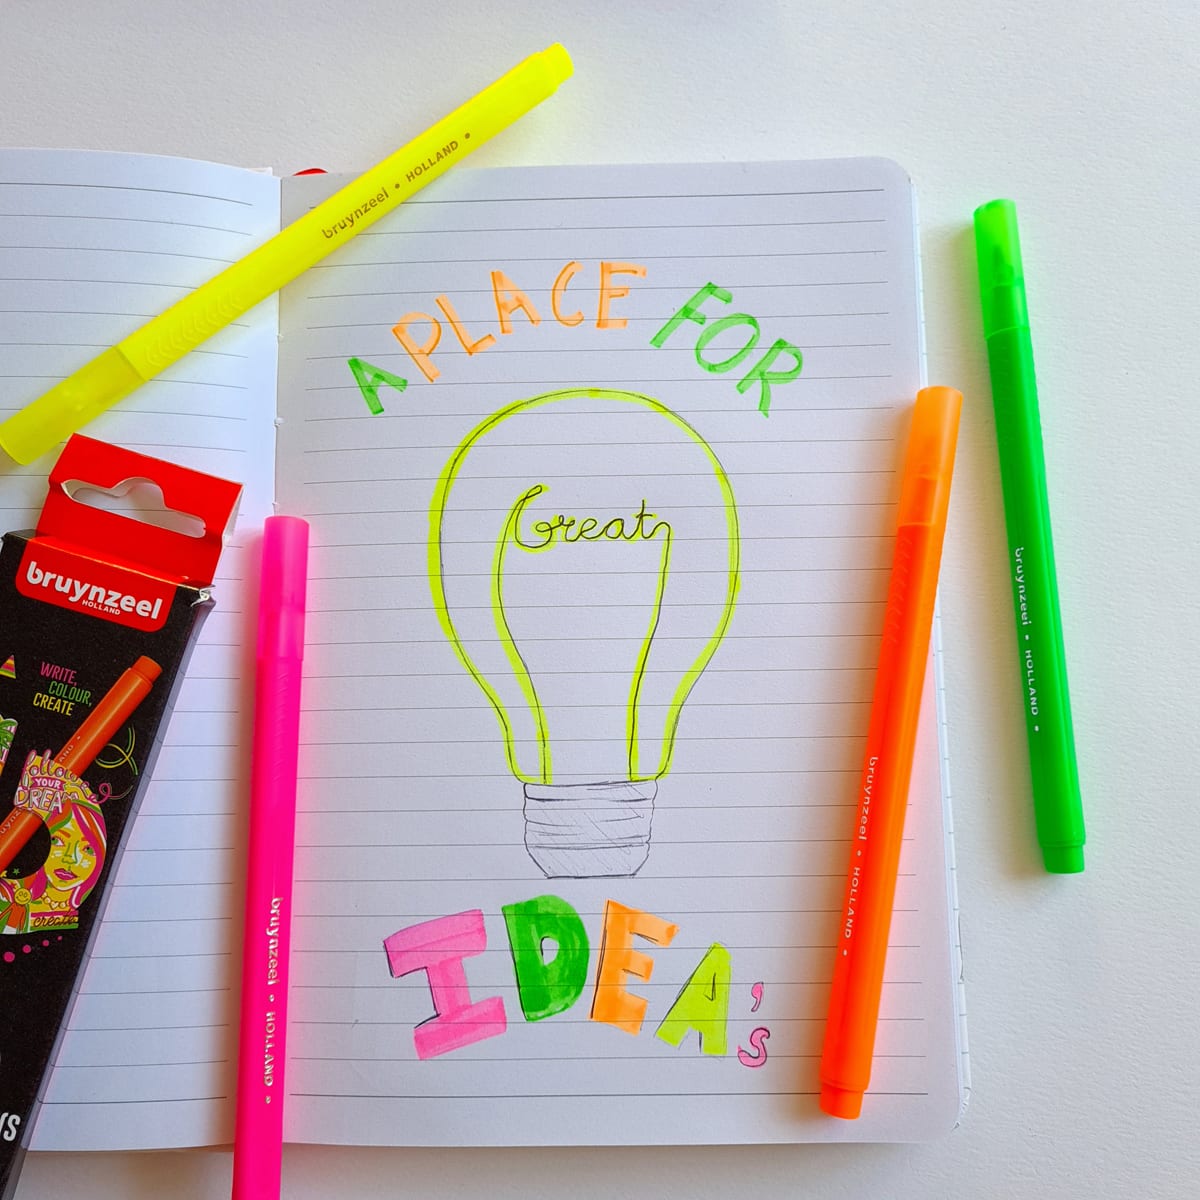 bruynzeel • HOLLAND •
A PLACE FOR
Great
IDEA's
bruynzeel
HOLLAND
WRITE,
COLOUR,
CREATE
follow
YOUR
DREAM
create
bruynzeel • HOLLAND •
bruynzeel • HOLLAND •
bruynzeel • HOLLAND •